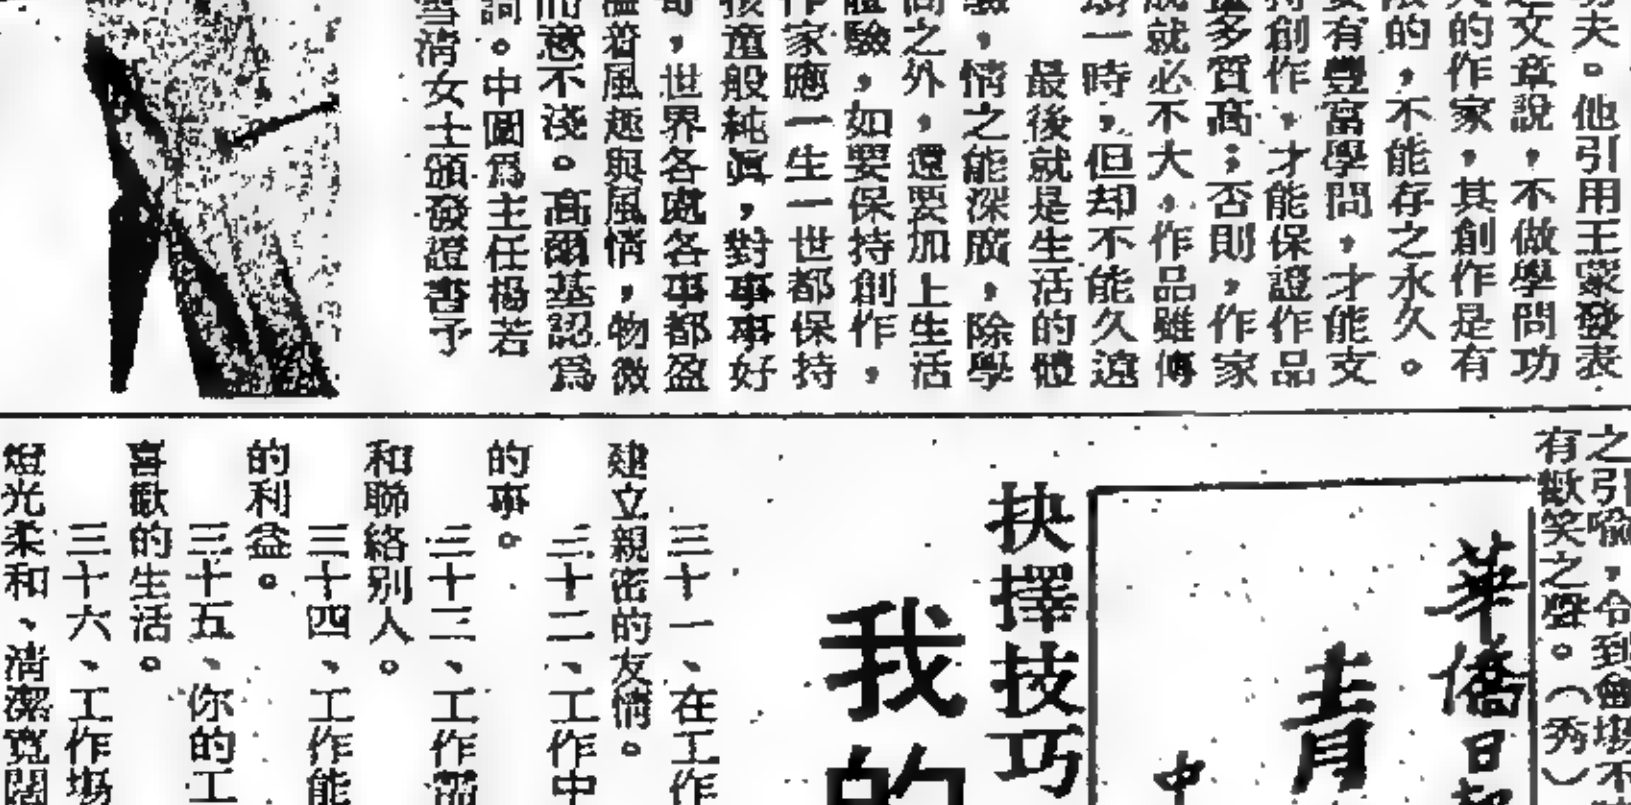 功夫。他引用王蒙發表
文章說，不做學問功
的作家，其創作是有
限的，不能存之永久。
要有豐富學問，才能支
持創作，才能保證作品
多質高；否則，作家
成就必不大，作品雖傳
一時，但却不能久遠
最後就是生活的體
驗，情之能深廣，除學
問之外，還要加上生活
體驗，如要保持創作，
作家應一生一世都保持
孩童般純眞，對事事好
奇，世界各處各事都盈
溢着風趣與風情，物微
而意不淺。高爾基認爲
詞。中圖爲主任楊若
雪清女士頒發證書予
之引喻，令到會場不
有歡笑之聲。（秀）
華僑日報
青
中
抉擇技巧
我的
三十一、在工作
建立親密的友情。
三十二、工作中
的事。
三十三、工作需
和聯絡別人。
三十四、工作能
的利益。
三十五、你的工
喜歡的生活。
三十六、工作場
燈光柔和、清潔寬闊